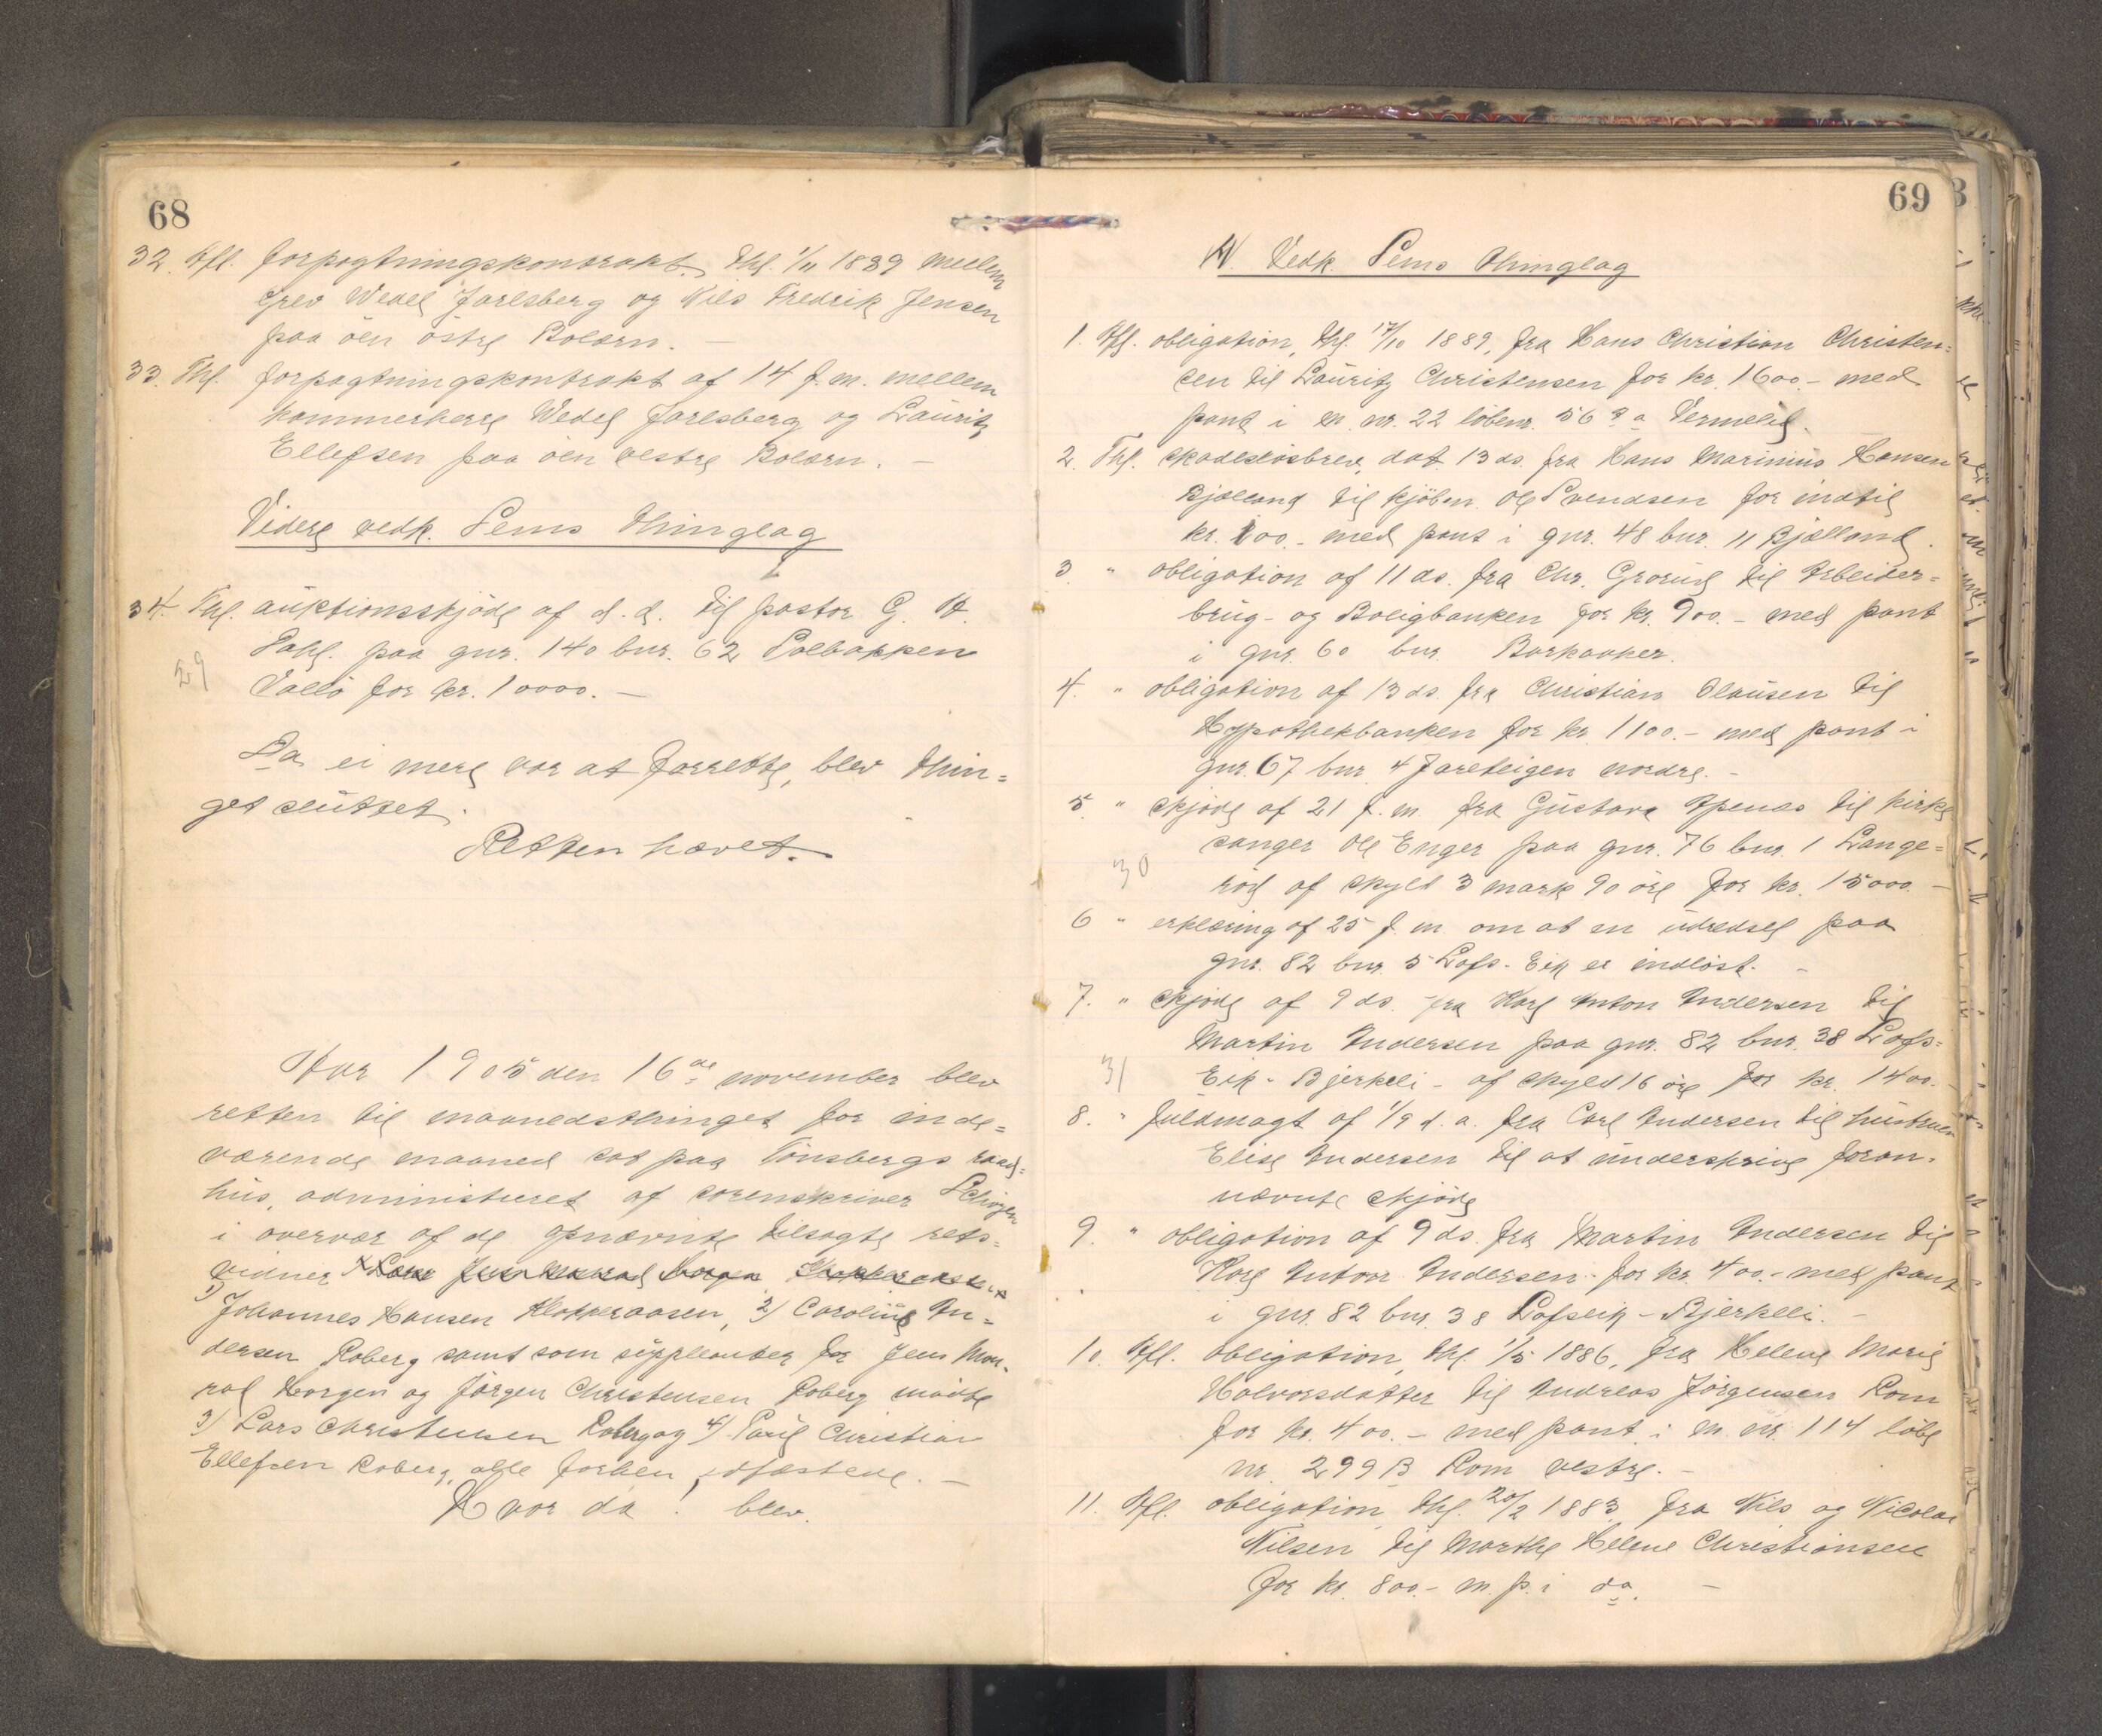 68
32. Afl. forpagtningskontrakt, thl. 1/11 1889 mellem
Grev Wedel Jarlsberg og Nils Fredrik Jensen
paa öen östre Bolærn. —
33. Thl. forpagtningskontrakt af 14 f. m. mellem
kammerherre Wedel Jarlsberg og Lauritz
Ellefsen paa öen vestre Bolærn. —
Videre vedk. Sems Thinglag
34. Thl. auktionsskjöde af d. d. til pastor G. A.
Dahl paa gnr. 140 bnr. 62 Solbakken
29 Vallö for kr. 10000. —
Da ei mere var at forrette, blev thin=
get sluttet.
Retten hævet.
Aar 1905 den 16de november blev
retten til maanedsthinget for inde=
værende maaned sat paa Tönsbergs raad=
hus, administreret af sorenskriver
i overvær af de opnævnte tilsagte rets=
vidner
1) Johannes Hansen Klopperaasen, 2) Carolius An=
dersen Roberg samt som suppleanter for Jens Mon=
rad Horgen og Jörgen Christensen Roberg mödte
3) Lars Christensen Roberg og 4) Paul Christian
Ellefsen Roberg, alle forhen edfæstede. —
Hvor da! blev.
69
A. Vedk. Sems Thinglag
1. Afl. obligation, thl. 17/10 1889, fra Hans Christian Christen=
sen til Lauritz Christensen for kr. 1600.- med
pant i m. nr. 22 löbenr. 56 a Vermelid.
2. Thl. skadeslösbrev, dat. 13 ds. fra Hans Marinius Hansen
Bjælland til kjöbm. Ole Svendsen for indtil
kr. 100.- med pant i gnr. 48 bnr. 11 Bjælland.
3 " obligation af 11 ds. fra Chr. Grorud til Arbeider=
brug- og Boligbanken for kr. 900.- med pant
i gnr. 60 bnr. Barkaaker.
4. " obligation af 13 ds. fra Christian Olausen til
Hypothekbanken for kr. 1100.- med pant i
gnr. 67 bnr. 4 Jareteigen nordre. -
5. " skjöde af 21 f. m. fra Gustava Apenæs til kirke
sanger Ole Enger paa gnr. 76 bnr. 1 Lange=
30 röd af skyld 3 mark 90 öre for kr. 15000. —
6 " erklæring af 25 f. m. om at en udredsel paa
gnr. 82 bnr. 5 Lofs-Eik er indlöst. -
7. " skjöde af 9 ds. fra Karl Anton Andersen til
Martin Andersen paa gnr. 82 bnr. 38 Lofs=
31 Eik - Bjerkeli - af skyld 16 öre for kr. 1400.-
8. " fuldmagt af 1/9 d. a. fra Carl Andersen til hustruen
Elise Andersen til at underskrive foran=
nævnte skjöde
9. " obligation af 9 ds. fra Martin Andersen til
Karl Anton Andersen for kr. 400.- med pant
i gnr. 82 bnr. 38 Lofseik - Bjerkeli. -
10. Afl. obligation, thl. 1/5 1886, fra Helene Marie
Halvorsdatter til Andreas Jörgensen Rom
for kr. 400.- med pant i m. nr. 114 löbe
nr. 299 B Rom vestre. -
11. Afl. obligation, thl. 20/2 1883, fra Nils og Nicolai
Nilsen til Marthe Helene Christiansen
for kr. 800.- m. p. i do. —